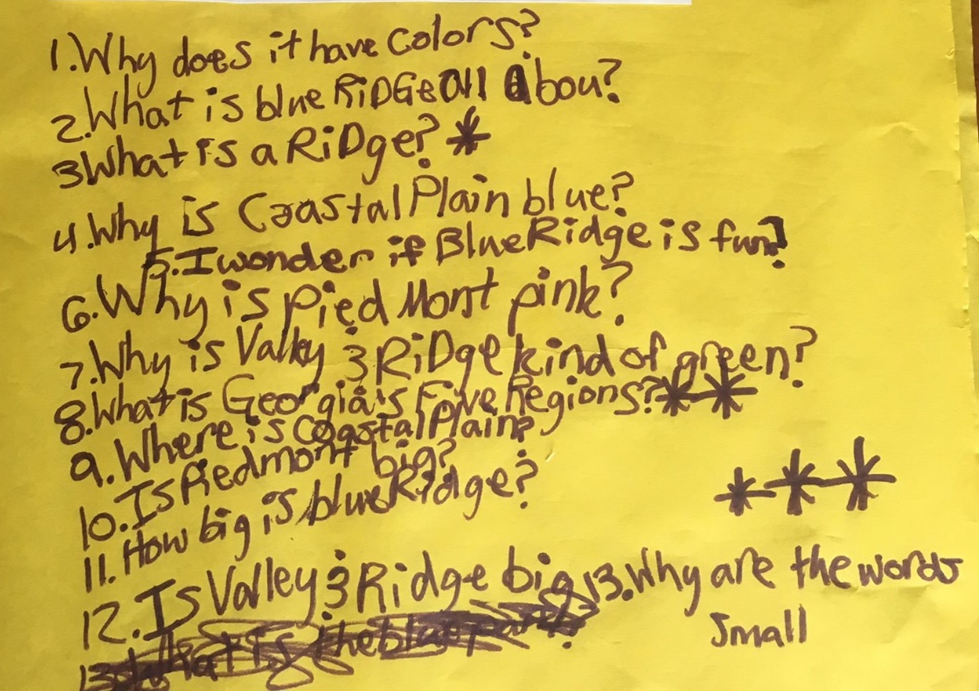 1. Why does it have colors?
2. What is blue RiDGe All Abou?
3 What is a RiDge? *
4. Why is Coastal Plain blue?
5. I wonder if Blue Ridge is fun?
6. Why is Pied Mont pink?
7. Why is Valley & RiDge kind of green?
8. What is Georgia's Five Regions? **
9. Where is Coastal Plain?
10. Is Piedmont big?
11. How big is blue Ridge?
***
12. Is Valley & Ridge big 13. Why are the words
small